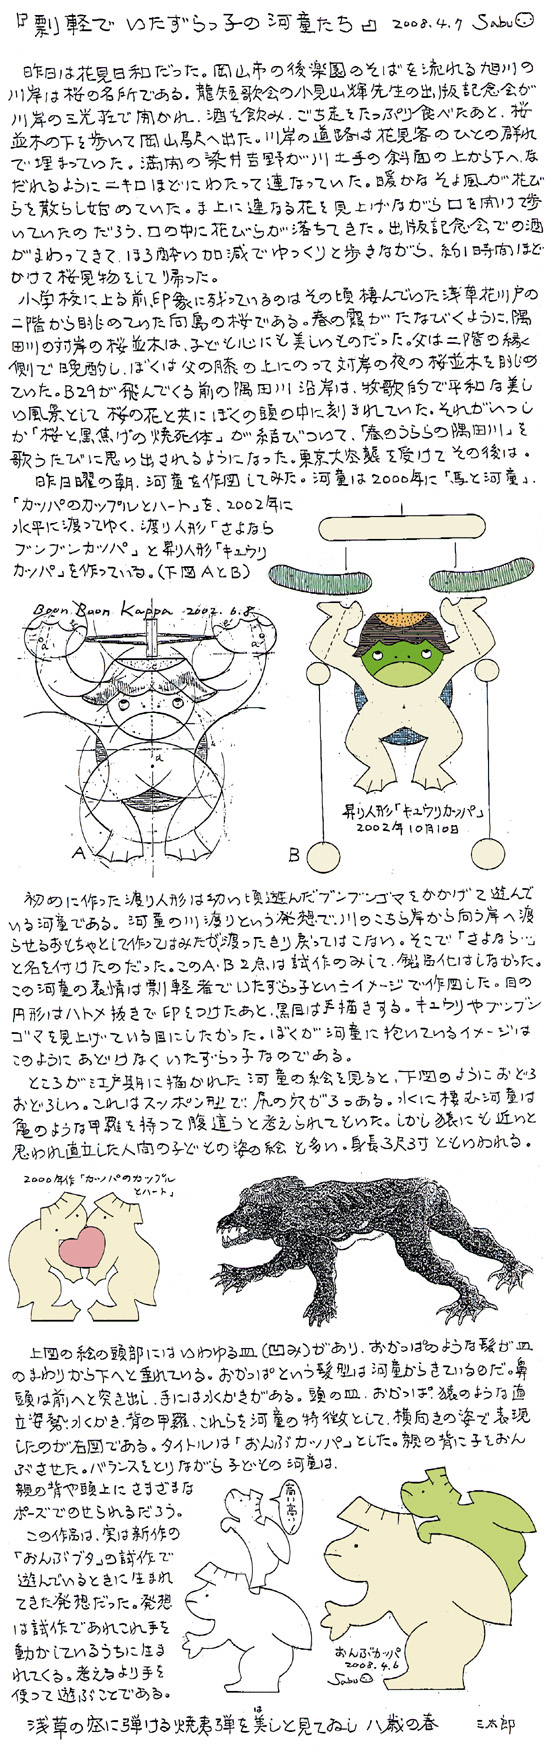 『剽軽で いたずらっ子の河童たち』 2008.4.7 Sabu
昨日は花見日和だった。岡山市の後楽園のそばを流れる旭川の
川岸は桜の名所である。龍短歌会の小見山輝先生の出版記念会が
川岸の三光荘で開かれ、酒を飲み、ごち走をたっぷり食べたあと、桜
並木の下を歩いて岡山駅へ出た。川岸の道路は花見客のひとの群れ
で埋まっていた。満開の染井吉野が川土手の斜面の上から下へ、な
だれるようにニキロほどにわたって連なっていた。暖かなそよ風が花び
らを散らし始めていた。ま上に連なる花を見上げながら口を開けて歩
いていたのだろう、口の中に花びらが落ちてきた。出版記念会での酒
がまわってきて、ほろ酔い加減でゆっくりと歩きながら、約1時間ほど
かけて桜見物をして帰った。
小学校に上る前、印象に残っているのはその頃棲んでいた浅草花川戸の
二階から眺めていた向島の桜である。春の霞がたなびくように、隅
田川の対岸の桜並木は、子ども心にも美しいものだった。父は二階の縁
側で晩酌し、ぼくは父の膝の上にのって対岸の夜の桜並木を眺め
ていた。B29が飛んでくる前の隅田川沿岸は、牧歌的で平和な美し
い風景として桜の花と共にぼくの頭の中に刻まれていた。それがいつし
か「桜と黒焦げの焼死体」が結びついて、「春のうららの隅田川」を
歌うたびに思い出されるようになった。東京大空襲を受けてその後は。
昨日曜の朝、河童を作図してみた。河童は2000年に「馬と河童」、
「カッパのカップルとハート」を、2002年に
水平に渡ってゆく、渡り人形「さよなら
ブンブンカッパ」と昇り人形「キュウリ
カッパ」を作っている。(下図AとB)
Boon Boon Kappa 2002.6.8
A
昇り人形「キュウリカッパ」
2002年10月10日
B
初めに作った渡り人形は幼い頃遊んだブンブンゴマをかかげて遊んで
いる河童である。河童の川渡りという発想で、川のこちら岸から向う岸へ渡
らせるおもちゃとして作ってはみたが渡ったきり戻ってはこない。そこで「さよなら…」
と名を付けたのだった。このA・B2点は試作のみして、製品化はしなかった。
この河童の表情は剽軽者でいたずらっ子というイメージで作図した。目の
円形はハトメ抜きで印をつけたあと、黒目は手描きする。キュウリやブンブン
ゴマを見上げている目にしたかった。ぼくが河童に抱いているイメージは
このようにあどけなくいたずらっ子なのである。
ところが江戸期に描かれた河童の絵を見ると、下図のようにおどろ
おどろしい。これはスッポン型で、尻の穴が3つある。水に棲む河童は
亀のような甲羅を持って腹這うと考えられていた。しかし猿にも近いと
思われ直立した人間の子どもの姿の絵も多い。身長3尺3寸ともいわれる。
2000年作「カッパのカップル
とハート」
上図の絵の頭部にはいわゆる皿(凹み)があり、おかっぱのような髪が皿
のまわりから下へと垂れている。おかっぱという髪型は河童からきているのだ。鼻
頭は前へと突き出し、手には水かきがある。頭の皿、おかっぱ、猿のような直
立姿勢、水かき、背の甲羅、これらを河童の特徴として、横向きの姿で表現
したのが右図である。タイトルは「おんぶカッパ」とした。親の背に子をおん
ぶさせた。バランスをとりながら子どもの河童は、
親の背や頭上にさまざまな
ポーズでのせられるだろう。
この作品は、実は新作の
「おんぶブタ」の試作で
遊んでいるときに生まれ
てきた発想だった。発想
は試作であれこれ手を
動かしているうちに生ま
れてくる。考えるより手を
使って遊ぶことである。
高い高い!
おんぶカッパ
2008.4.6
Sabu
浅草の空に弾ける焼夷弾を美しと見てゐし 八歳の春 三太郎
は